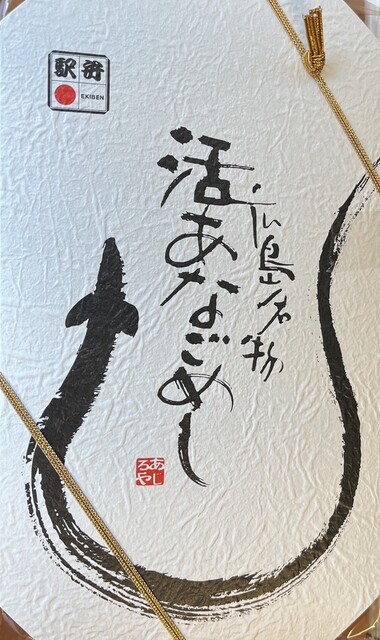 駅弁
EKIBEN
広島名物
活あなごめし
あじろや